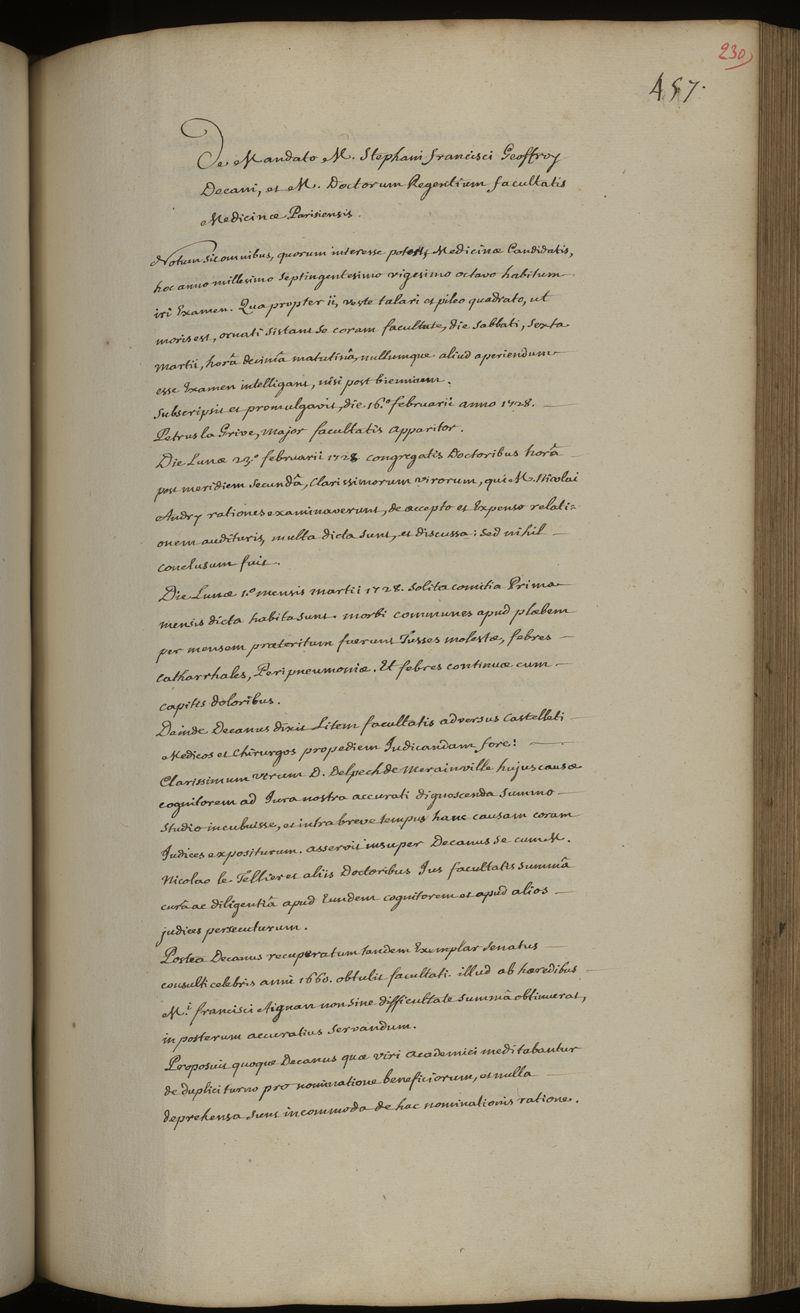 230
457.
De Mandato M. Stephani francisci Geoffroy
Decani, et M. Doctorum Regentium facultatis
Medicinæ Parisiensis.
Notum sit omnibus, quorum interesse potest, Medicinæ Candidatis,
hoc anno millesimo septingentesimo vigesimo octavo habitum
iri Examen. Qua propter ii, veste talari et pileo quadrato, ut
moris est, ornati sistant se coram facultate, die sabbati, sexta
martii, horâ decimâ matutinâ, nullumque aliud aperiendum
esse Examen intelligant, nisi post biennium.
Subscripsit et promulgavit, die 16.º februarii anno 1728.
Petrus la Grive, major facultatis apparitor.
Die Lunæ 23.º februarii 1728 congregatis Doctoribus horâ
post meridiem secundâ, Clarissimorum virorum, qui M. Nicolai
Andry rationes examinaverunt, de accepto et Expenso relati=
onem audituris, multa dicta sunt, et discussa: sed nihil
conclusum fuit.
Die Lunæ 1.º mensis martii 1728. solita comitia Prima
mensis dicta habita sunt. morbi communes apud plæbem
per mensem præteritum fuerunt Tusses molestæ, febres
catharrhales, Peripneumoniæ. Et febres continuæ cum
capitis doloribus.
Deinde Decanus dixit Litem facultatis adversus Castelleti
Medicos et Chirurgos propediem Judicandam fore:
Clarissimum virum D. Delpech de Merainville hujus causæ
cognitorem ad Jura nostra accurati dignoscenda summo
studio incubuisse, et intra breve tempus hanc causam coram
Judices expositurum. asseruit insuper Decanus se cum M.
Nicolao le Tellier et aliis Doctoribus Jus facultatis summâ
curâ ac diligentiâ apud Eundem cognitorem et apud alios
judices persecuturum.
Postea Decanus recuperatum tandem Exemplar senatus
consulti celebris anni 1660. obtulit facultati. illud ab hæredibus
M.i francisci Aignan non sine difficultate summâ obtinuerat,
in posterum accuratius servandum.
Proposuit quoque Decanus quæ viri academici meditabantur
de duplici turno pro nominatione beneficiorum, et nulla
deprehensa sunt incommoda de hac nominationis ratione.